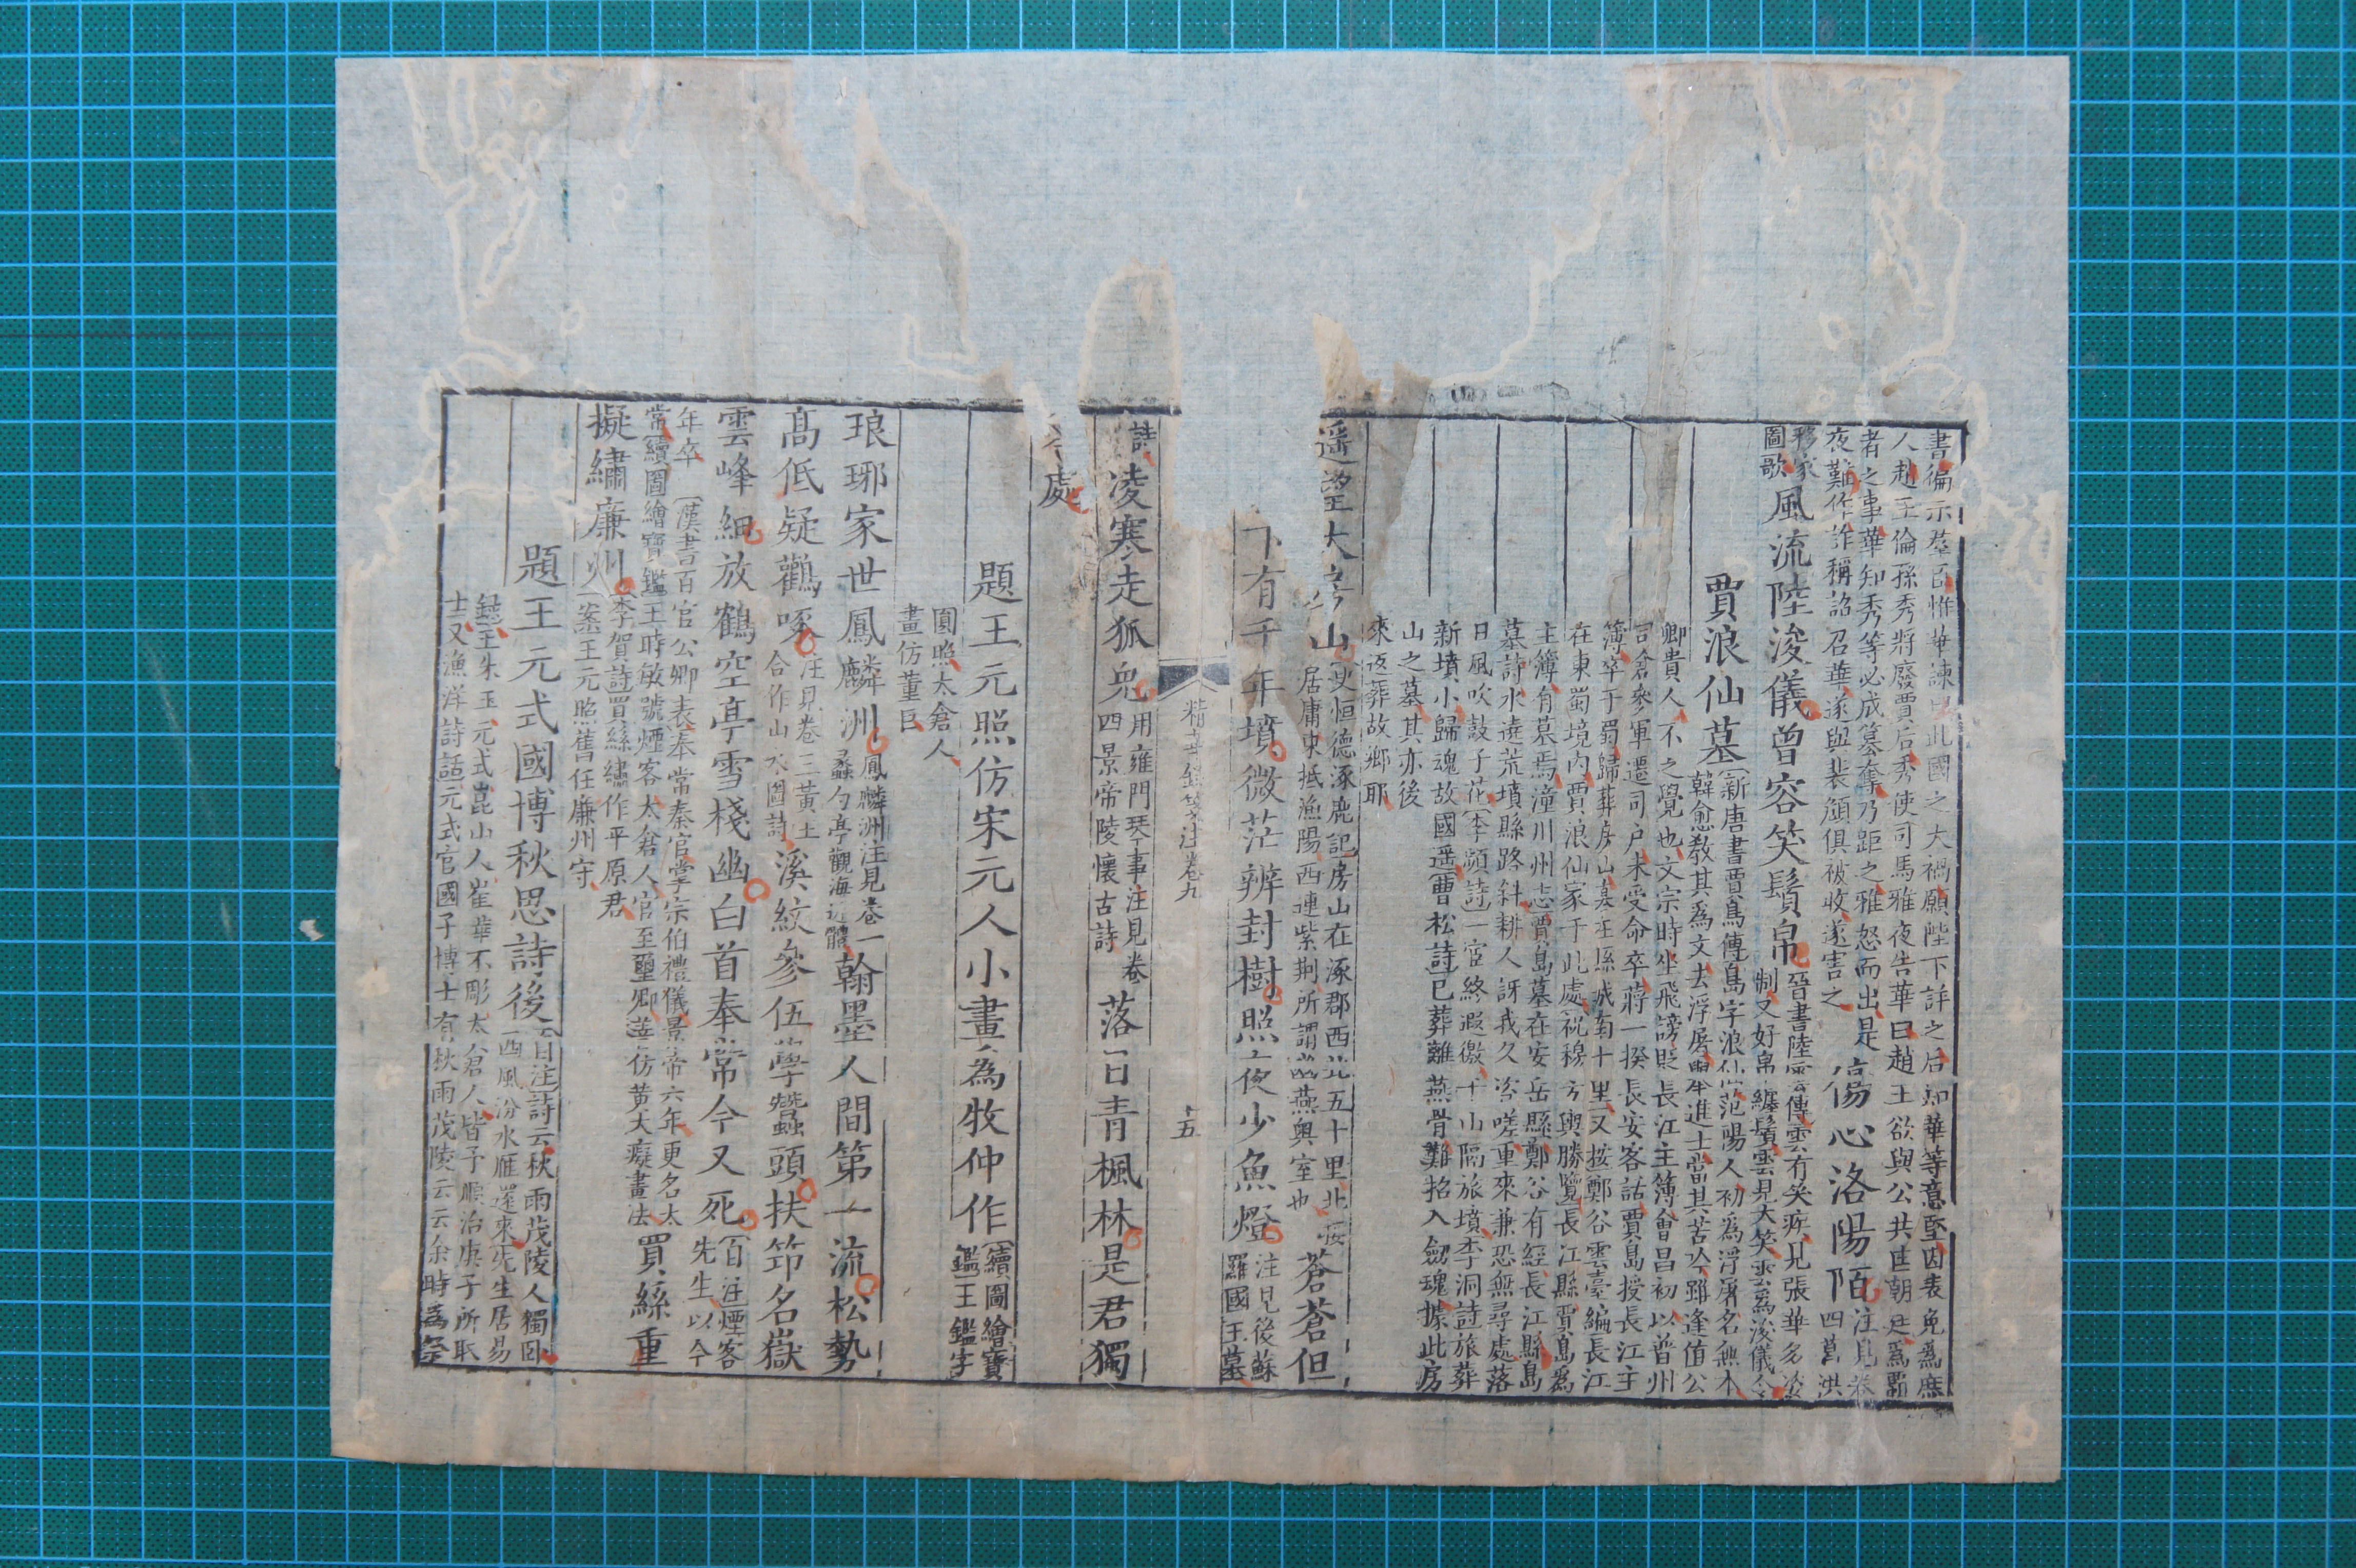 書徧示羣臣惟華諫此國之大禍願陛下詳之后知華等意堅因表免爲庶
人趙王倫孫秀將廢賈后秀使司馬雅夜告華曰趙王欲與公共匡朝廷爲霸
者之事華知秀等必成篡奪乃距之雅怒而出是
夜難作詐稱詔召華遂與裴頠俱被收遂害之
傷心洛陽陌
注見卷
四葛洪
移家
圖歌
風流陸浚儀曾容笑鬚帛
晉書陸雲傳雲有笑疾見張華多姿
制又好帛繩纏鬚雲見大笑雲爲浚儀令
賈浪仙墓
新唐書賈島傳島字浪仙范陽人初爲浮屠名無本
韓愈教其爲文去浮屠舉進士當其苦吟雖逢值公
卿貴人不之覺也文宗時坐飛謗貶長江主簿會昌初以普州
司倉參軍遷司户未受命卒蔣一揆長安客話賈島授長江主
簿卒于蜀歸葬房山墓在縣城南十里又按鄭谷雲臺編長江
在東蜀境内賈浪仙家于此處祝穆方輿勝覽長江縣賈島爲
主簿有墓焉潼川州志賈島墓在安岳縣鄭谷有經長江縣島
墓詩水遶荒墳縣路斜耕人訝我久咨嗟重來兼恐無尋處落
日風吹鼓子花李頻詩一宦終遐徼千山隔旅墳李洞詩旅葬
新墳小歸魂故國遥曹松詩已葬離燕骨難招入劒魂據此房
山之墓其亦後
來返葬故鄉耶
遥望大房山
史恒德涿鹿記房山在涿郡西北五十里北接
居庸東抵漁陽西連紫荆所謂幽燕奥室也
蒼蒼但
下有千年墳微茫辨封樹照夜少魚燈
注見後蘇
羅國王墓
精華録箋注卷九
十五
詩
凌寒走狐兔
用雍門琴事注見卷
四景帝陵懷古詩
落日青楓林是君獨
處
題王元照仿宋元人小畫為牧仲作
續圖繪寶
鑑王鑑字
圓照太倉人
畫仿董巨
琅琊家世鳳麟洲
鳳麟洲注見卷一
蠡勺亭觀海近體
翰墨人間第一流松勢
髙低疑鸛啄
注見卷三黄土
合作山水圖詩
溪紋參伍學蠶頭扶笻名嶽
雲峰細放鶴空亭雪棧幽白首奉常今又死
自注煙客
先生以今
年卒
漢書百官公卿表奉常秦官掌宗伯禮儀景帝六年更名太
常續圖繪寶鑑王時敏號煙客太倉人官至璽卿善仿黄大癡畫法
買絲重
擬繡廉州
李賀詩買絲繡作平原君
案王元照舊任廉州守
題王元式國博秋思詩後
自注詩云秋雨茂陵人獨卧
西風汾水雁還來先生居易
録王朱玉元式崑山人崔華不彫太倉人皆予順治庚子所取
士又漁洋詩話元式官國子博士有秋雨茂陵云云余時爲祭